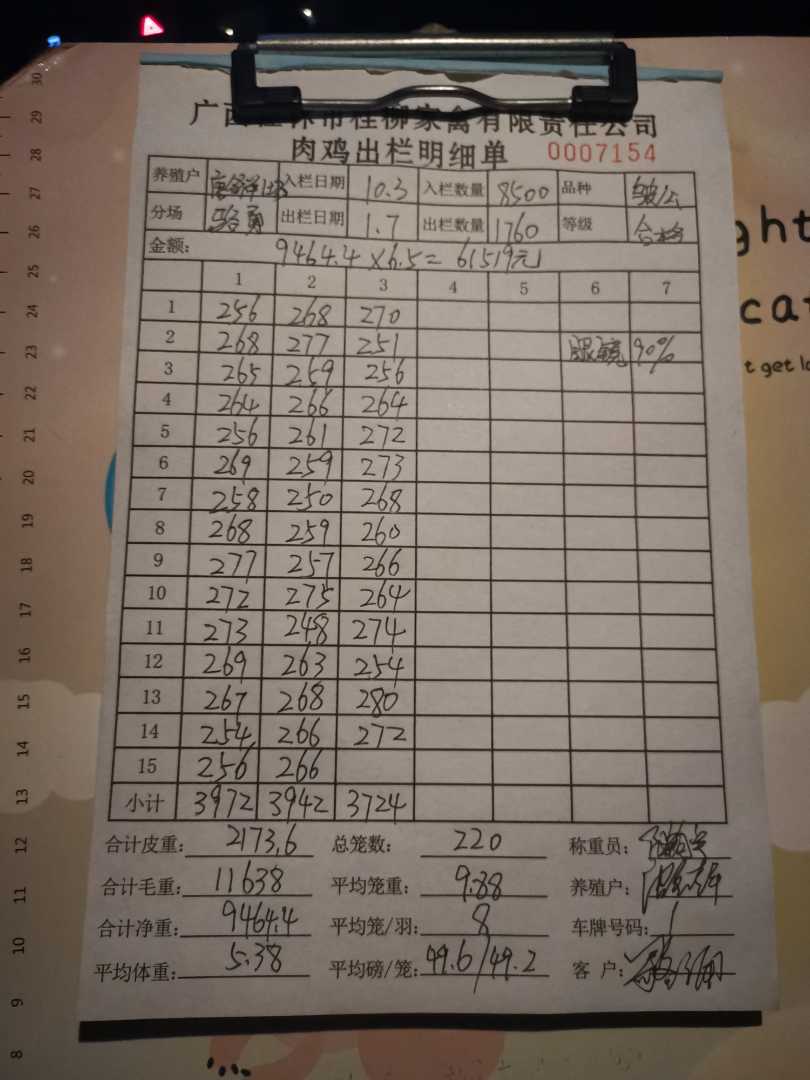 广西桂林市桂柳家禽有限责任公司
肉鸡出栏明细单 0007154
养殖户 入栏日期 10.3 入栏数量 8500 品种
分场 出栏日期 1.7 出栏数量 1760 等级 合格
金额: 9464.4×6.5=61519元
1 2 3 4 5 6 7
1 256 268 270
2 268 277 251 眼镜 90%
3 265 259 256
4 264 266 264
5 256 261 272
6 269 259 273
7 258 250 268
8 268 259 260
9 277 257 266
10 272 275 264
11 273 248 274
12 269 263 254
13 267 268 280
14 254 266 272
15 256 266
小计 3972 3942 3724
合计皮重: 2173.6 总笼数: 220 称重员:
合计毛重: 11638 平均笼重: 9.88 养殖户:
合计净重: 9464.4 平均笼/羽: 8 车牌号码: 1
平均体重: 5.38 平均磅/笼: 49.6/49.2 客户:
30
29
28
27
26
25
24
23
22
21
20
19
18
17
16
15
14
13
12
11
10
9
8
ght
cat
t get lo